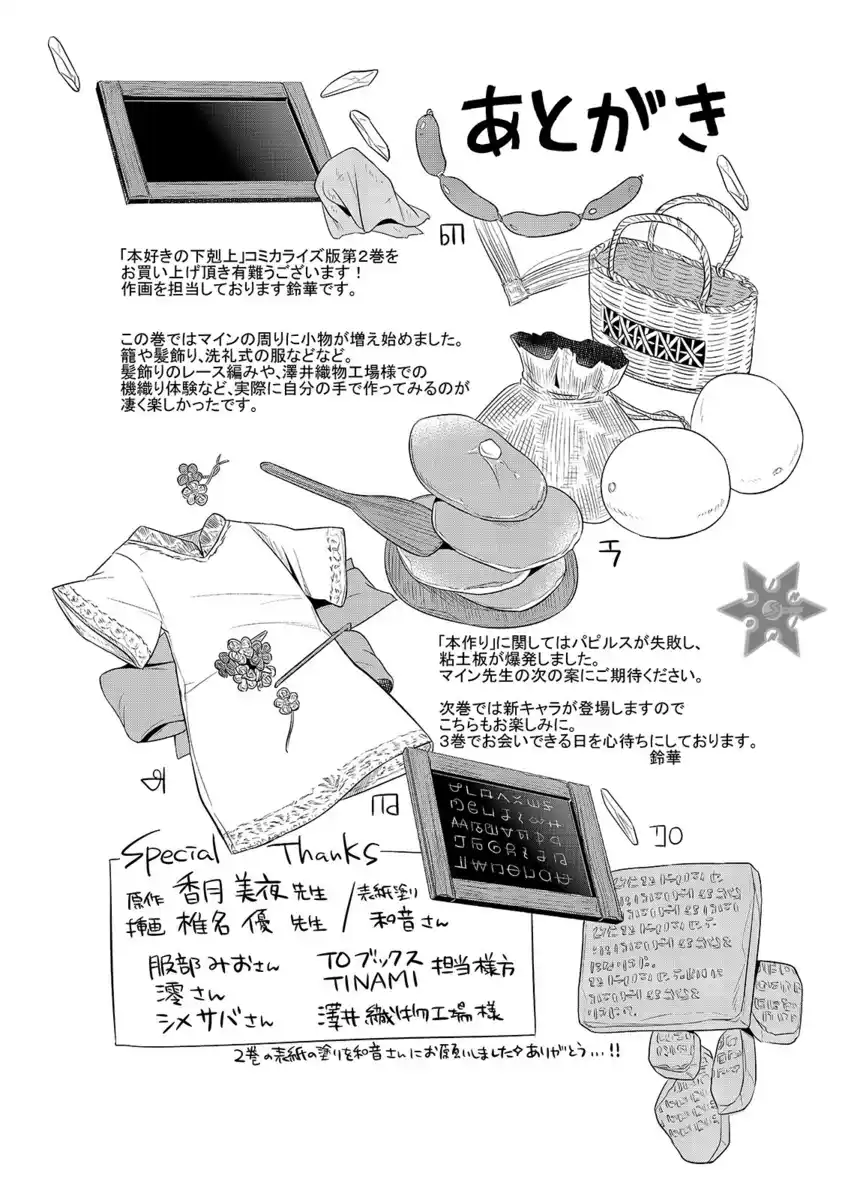 あとがき
「本好きの下剋上」コミカライズ版第2巻を
お買い上げ頂き有難うございます！
作画を担当しております鈴華です。
この巻ではマインの周りに小物が増え始めました。
籠や髪飾り、洗礼式の服などなど。
髪飾りのレース編みや、澤井織物工場様での
機織り体験など、実際に自分の手で作ってみるのが
凄く楽しかったです。
「本作り」に関してはパピルスが失敗し、
粘土板が爆発しました。
マイン先生の次の案にご期待ください。
次巻では新キャラが登場しますので
こちらもお楽しみに。
３巻でお会いできる日を心待ちにしております。
鈴華
Special Thanks
原作 香月美夜先生 / 表紙塗り
挿画 椎名優先生 / 和音さん
服部みおさん TOブックス
澪さん TINAMI 担当様方
シメサバさん 澤井織物工場様
2巻の表紙の塗りを和音さんにお願いしました ありがとう…!!